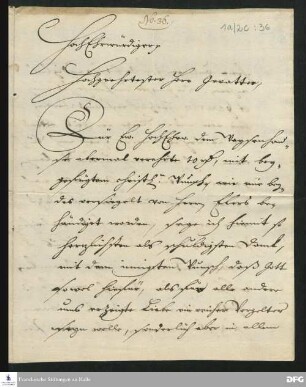 No 36.
1a/2c : 36
HochEhrwürdiger,
Hochgeehrtester Herr Gevatter,
Für Ew. HochEhrw. dem Waysenhau-
se abermal verehrte 10 rthl. mit bey-
gefügtem christl. Wunsch, wie mir bey-
des versiegelt von Herrn Elers be-
händiget worden, sage ich hiemit so
herzlichsten als schuldigsten Danck,
mit dem innigsten Wunsch, daß Gott
sowol hiefür, als für alle andere
uns erzeigte Liebe ein reicher Vergelter
seyn wolle, sonderlich aber in allem
Franckesche Stiftungen zu Halle
DFG